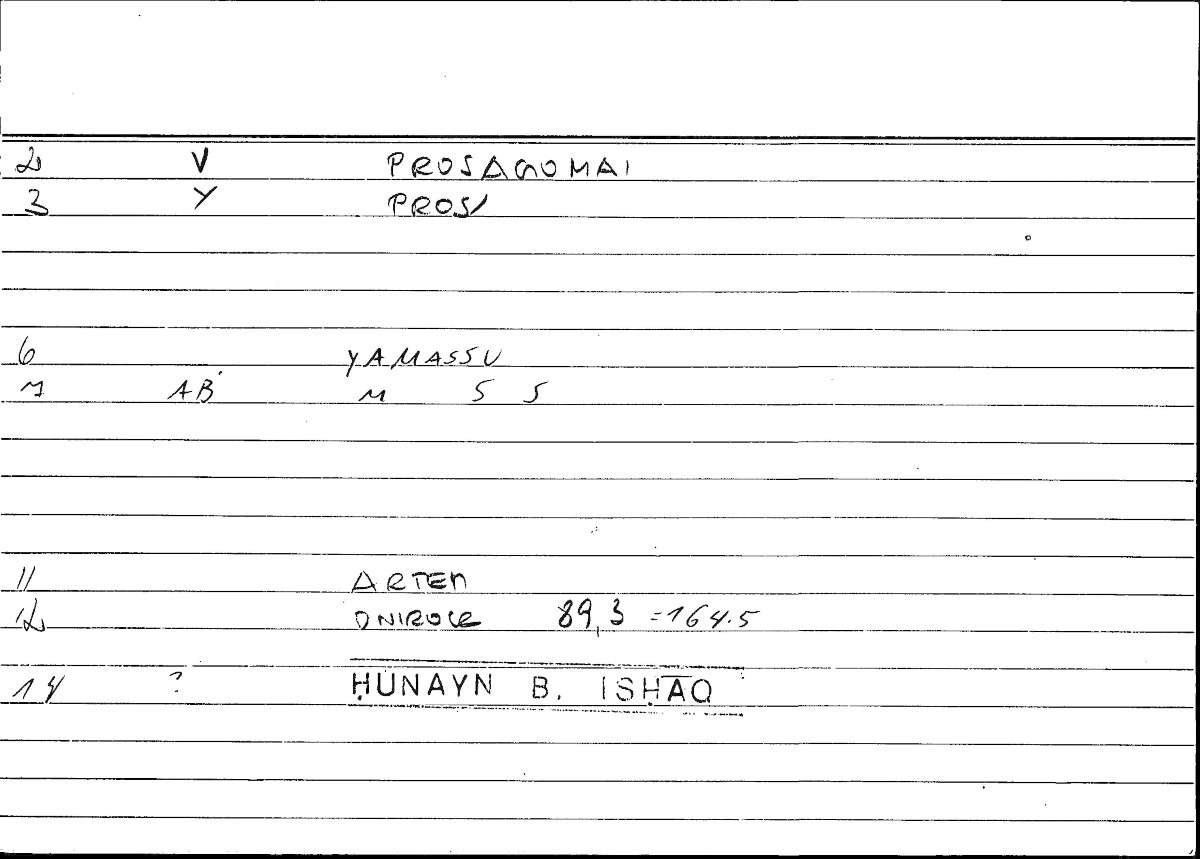 2 V PROSAGOMAI
3 Y PROS/
6 YAMASSU
7 AB M S S
11 ARTEM
12 ONIROCR 89,3 =164.5
14 ? ḤUNAYN B. ISḤĀQ